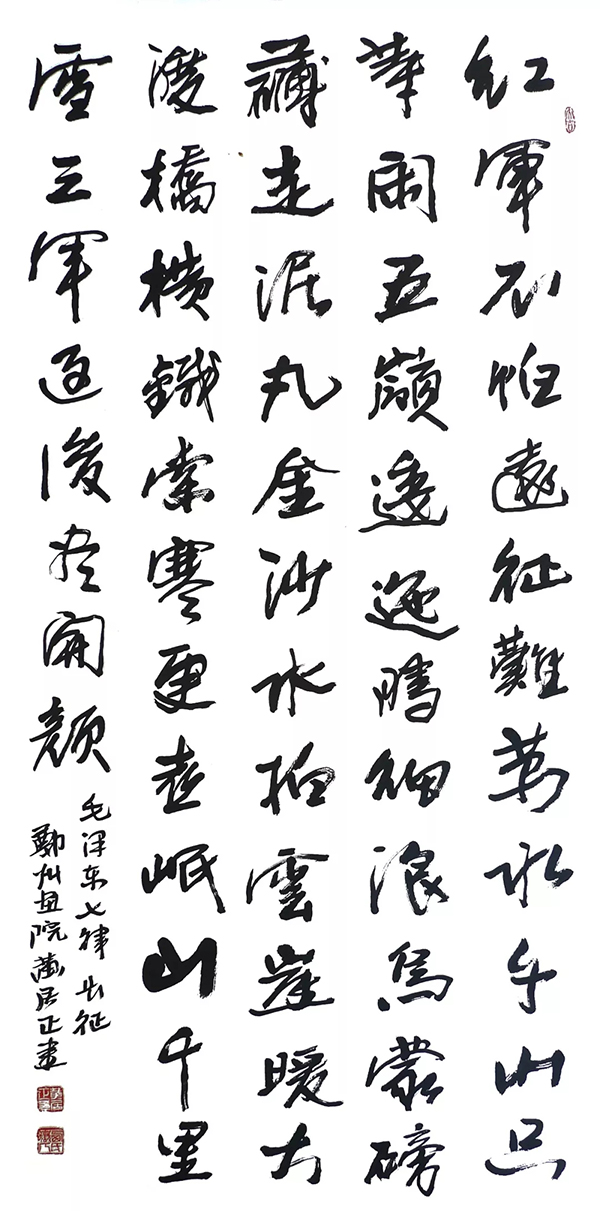 紅軍不怕遠征難萬水千山只
等閑五嶺逶迤騰細浪烏蒙磅
礴走泥丸金沙水拍雲崖暖大
渡橋橫鐵索寒更喜岷山千里
雪三軍過後尽開顏
毛泽东七律长征
鄭州画院黄居正書